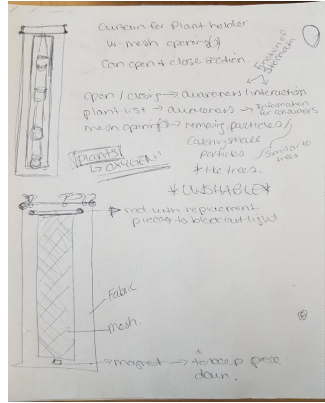 Curtain for Plant holder
w mesh opening(s)
Can open + close section
Function of
Stomata
open / closing → awareness / interaction
plant list → awareness → Information
for consumers
mesh opening(s) → removing particles /
catching small
particles
Similar to
trees
* like trees.
Plants
↳ OXYGEN!
* WASHABLE *
rod with replacement
pieces to blackout light
Fabric
mesh
magnet → to keep piece
down.